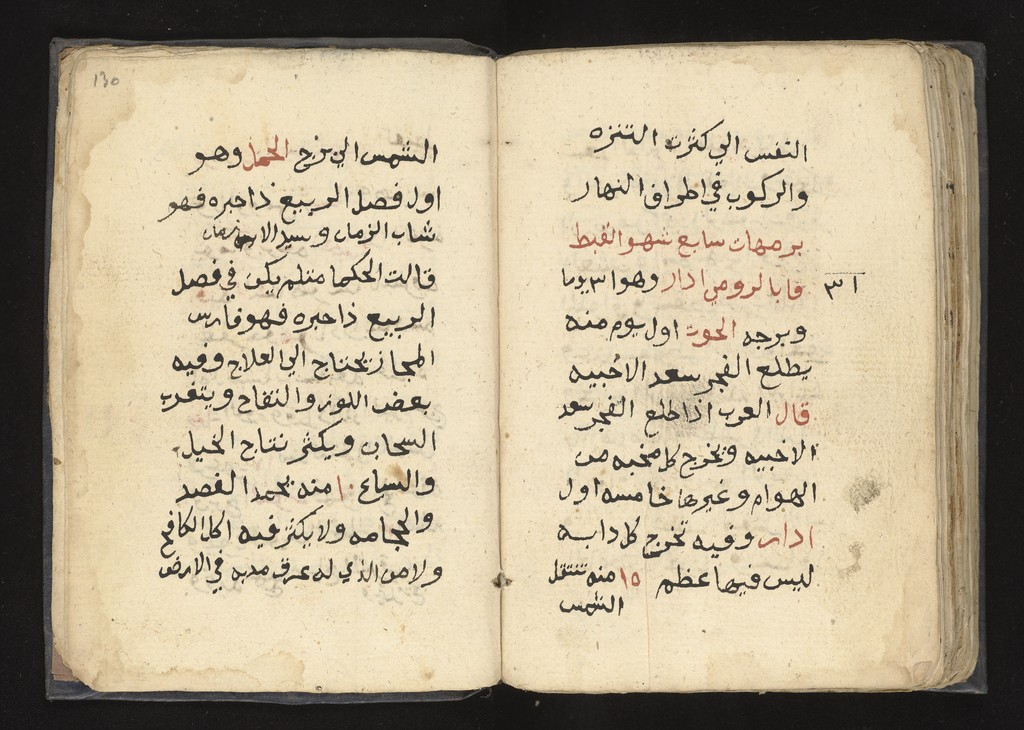 النفس الي كثرت التنزه
والركوب في اطراف النهار
برمهات سابع شهو القبط
٣١
قابالرومي ادار وهو ٣١ يوما
وبرجه الحوت اول يوم منه
يطلع الفجر سعد الاخبيه
قال العرب اذا طلع الفجر سعد
الاخبيه وتخرج كل مخبه من
الهوام وغيرها خامسه اول
ادار وفيه تخرج كل دابه
ليس فيها عظم ١٥ منه تنتقل
الشمس
130
الشمس الي برج الحمل وهو
اول فصل الربيع ذا حبره فهو
شاب الزمان وسيد
قالت الحكما متلم يكن في فصل
الربيع ذا حبره فهو فارس
المجاز يحتاج الي العلاج وفيه
بعض اللوز والتفاح ويتفرب
السحاب ويكثر نتاج الخيل
والسباع ١٠ منه يحمد الفصد
والحجامه ولا يكثر فيه اكل الكافخ
ولا من الذي له عرق مدبه في الارض